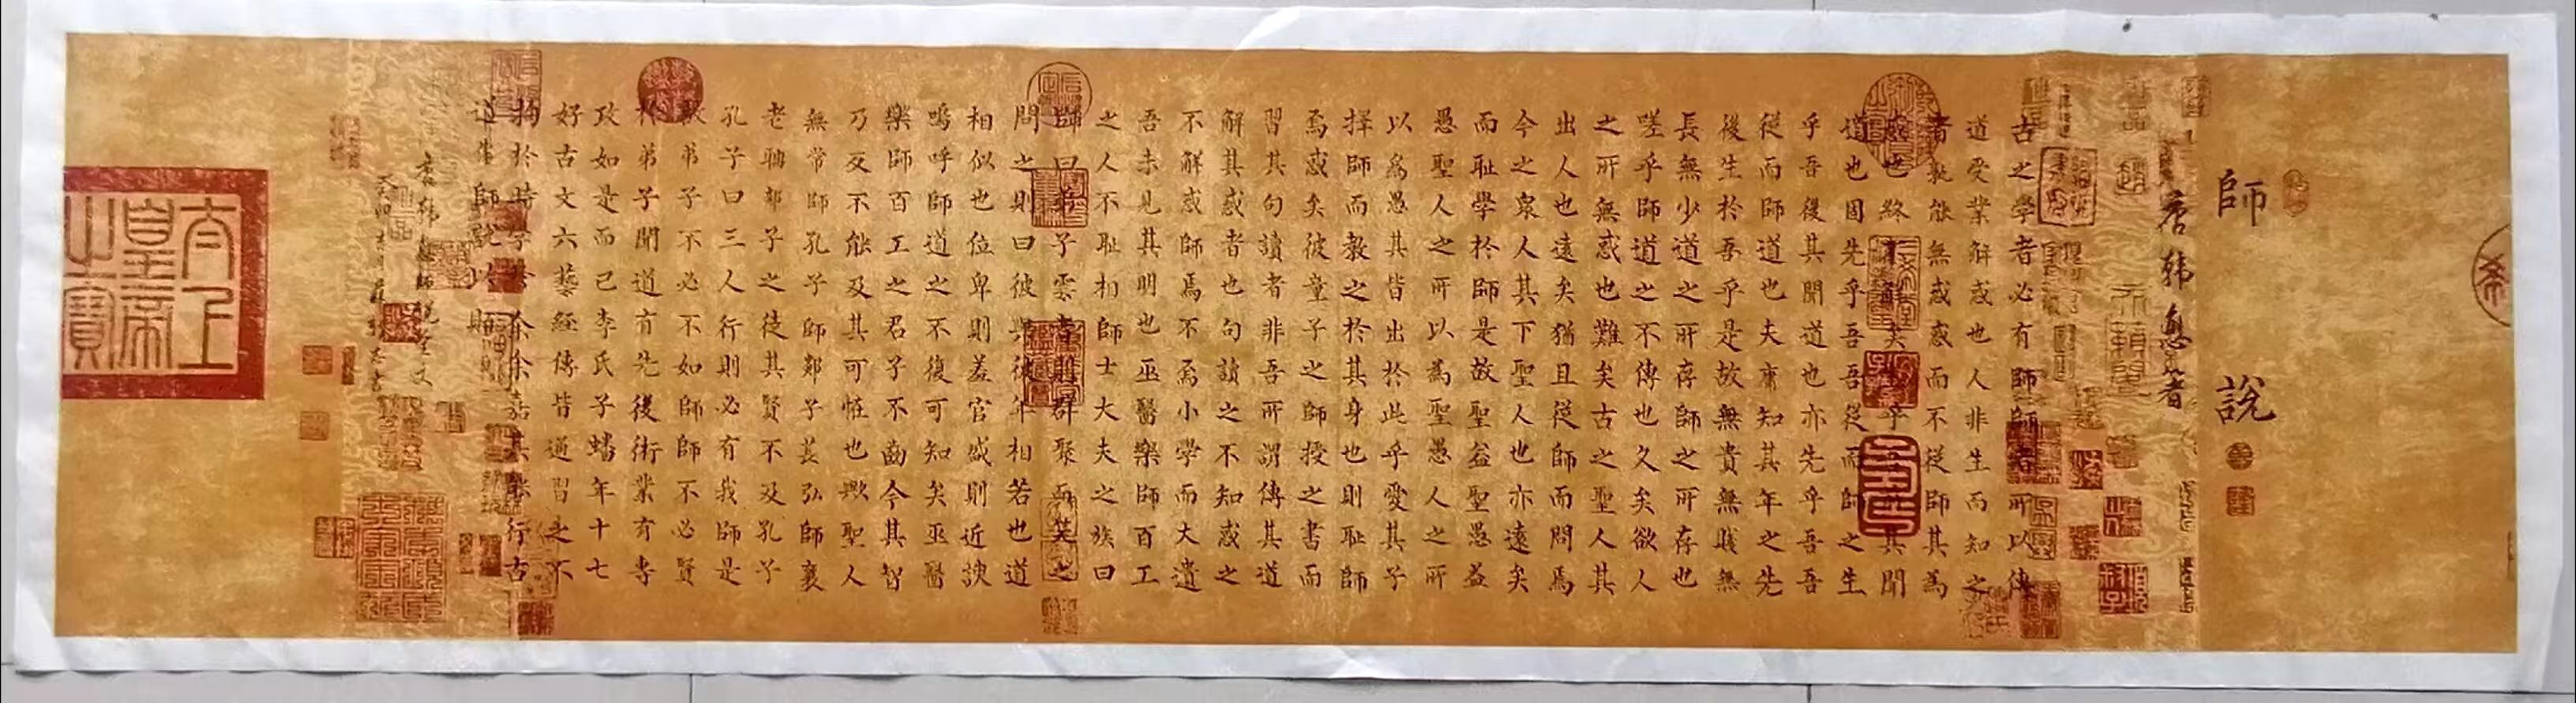 師說
唐韓愈
古之學者必有師師者所以傳
道受業解惑也人非生而知之
者孰能無惑惑而不從師其為
惑也終不矣乎其聞
道也固先乎吾吾從而師之生
乎吾後其聞道也亦先乎吾吾
從而師道也夫庸知其年之先
後生於吾乎是故無貴無賤無
長無少道之所存師之所存也
嗟乎師道之不傳也久矣欲人
之所無惑也難矣古之聖人其
出人也遠矣猶且從師而問焉
今之衆人其下聖人也亦遠矣
而耻學於師是故聖益聖愚益
愚聖人之所以為聖愚人之所
以為愚其皆出於此乎愛其子
擇師而教之於其身也則耻師
焉惑矣彼童子之師授之書而
習其句讀者非吾所謂傳其道
解其惑者也句讀之不知惑之
不解惑師焉不焉小學而大遺
吾未見其明也巫醫樂師百工
之人不耻相師士大夫之族曰
師曰弟子雲者則群聚而笑之
問之則曰彼與彼年相若也道
相似也位卑則羞官盛則近諛
嗚呼師道之不復可知矣巫醫
樂師百工之君子不齒今其智
乃反不能及其可怪也歟聖人
無常師孔子師郯子萇弘師襄
老聃郯子之徒其賢不及孔子
孔子曰三人行則必有我師是
故弟子不必不如師師不必賢
於弟子聞道有先後術業有專
攻如是而已李氏子蟠年十七
好古文六藝經傳皆通習之不
拘於時學於余余嘉其能行古
道作師說以貽
唐韓愈師說全文
太上皇帝之寶